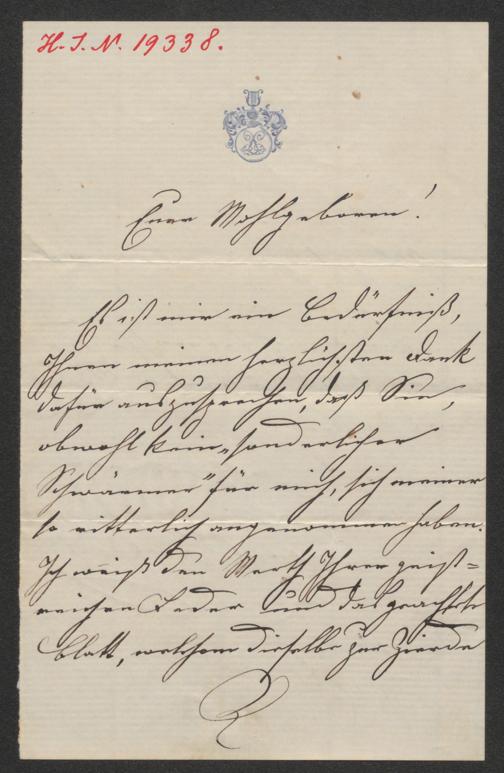 H. I. N. 19338.
Euer Wohlgeboren!
Es ist mir ein Bedürfniß,
Ihnen meinen herzlichsten Dank
dafür auszusprechen, daß Sie,
obwohl kein „sonderlicher
Schwärmer" für mich, sich meiner
so ritterlich angenommen haben.
Ich weiß den Werth Ihrer geist=
reichen Feder und das geachtete
Blatt, welchem dieselbe zur Zierde